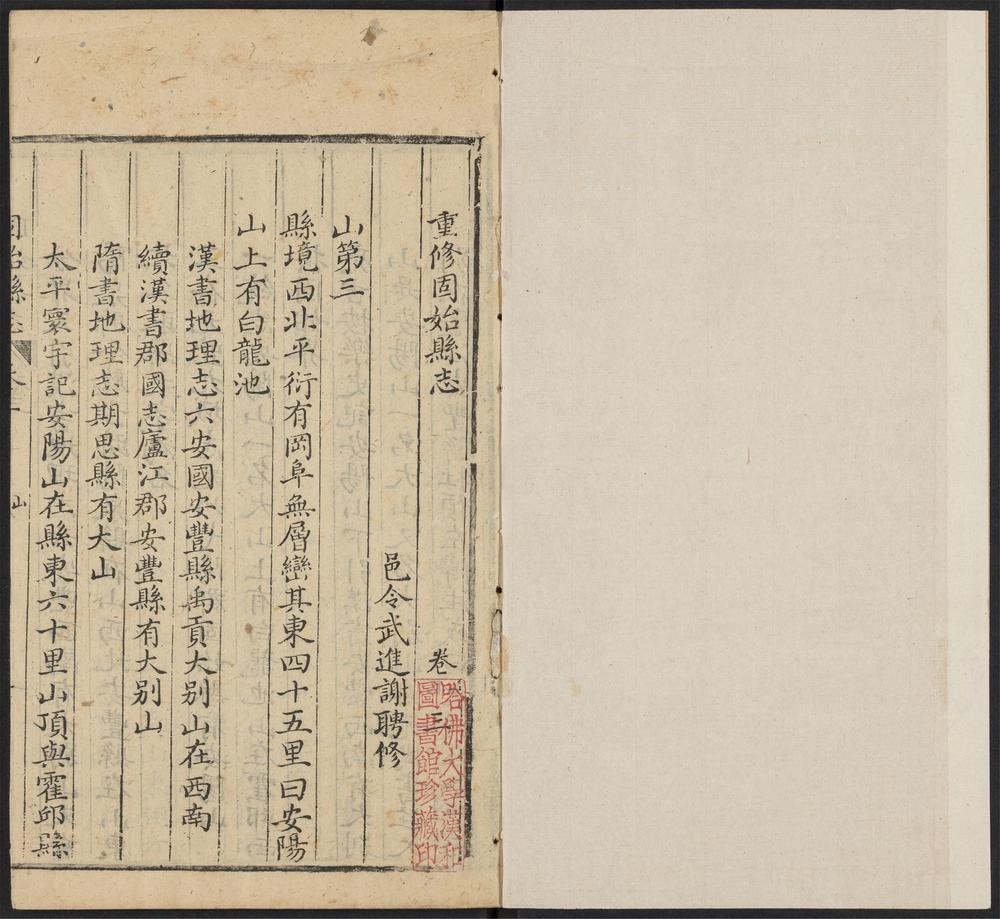 重修固始縣志 卷三
哈佛大學漢和
圖書館珍藏印
邑令武進謝聘修
山第三
縣境西北平衍有岡阜無層巒其東四十五里曰安陽
山上有白龍池
漢書地理志六安國安豐縣禹貢大別山在西南
續漢書郡國志廬江郡安豐縣有大别山
隋書地理志期思縣有大山
太平寰宇記安陽山在縣東六十里山頂與霍邱縣
固始縣志 山